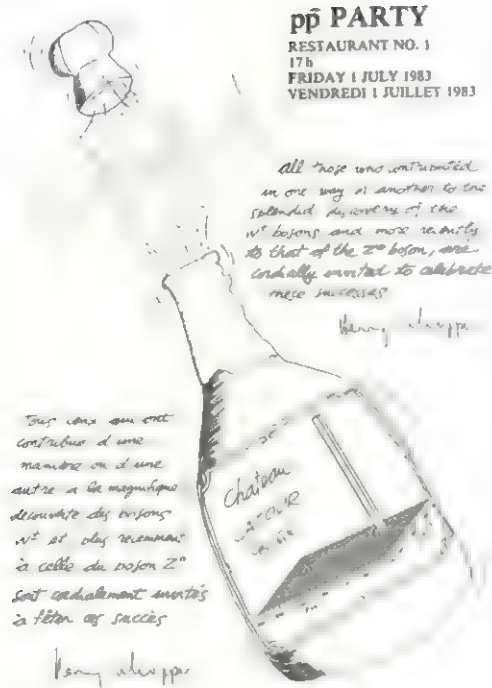 pp̄ PARTY
RESTAURANT NO. 1
17 h
FRIDAY 1 JULY 1983
VENDREDI 1 JUILLET 1983
All those who contributed
in one way or another to the
splendid discovery of the
W± bosons and more recently
to that of the Z° boson, are
cordially invited to celebrate
these successes
Tous ceux qui ont
contribué d'une
manière ou d'une
autre à la magnifique
découverte des bosons
W± et plus récemment
à celle du boson Z°
sont cordialement invités
à fêter ces succès
Chateau